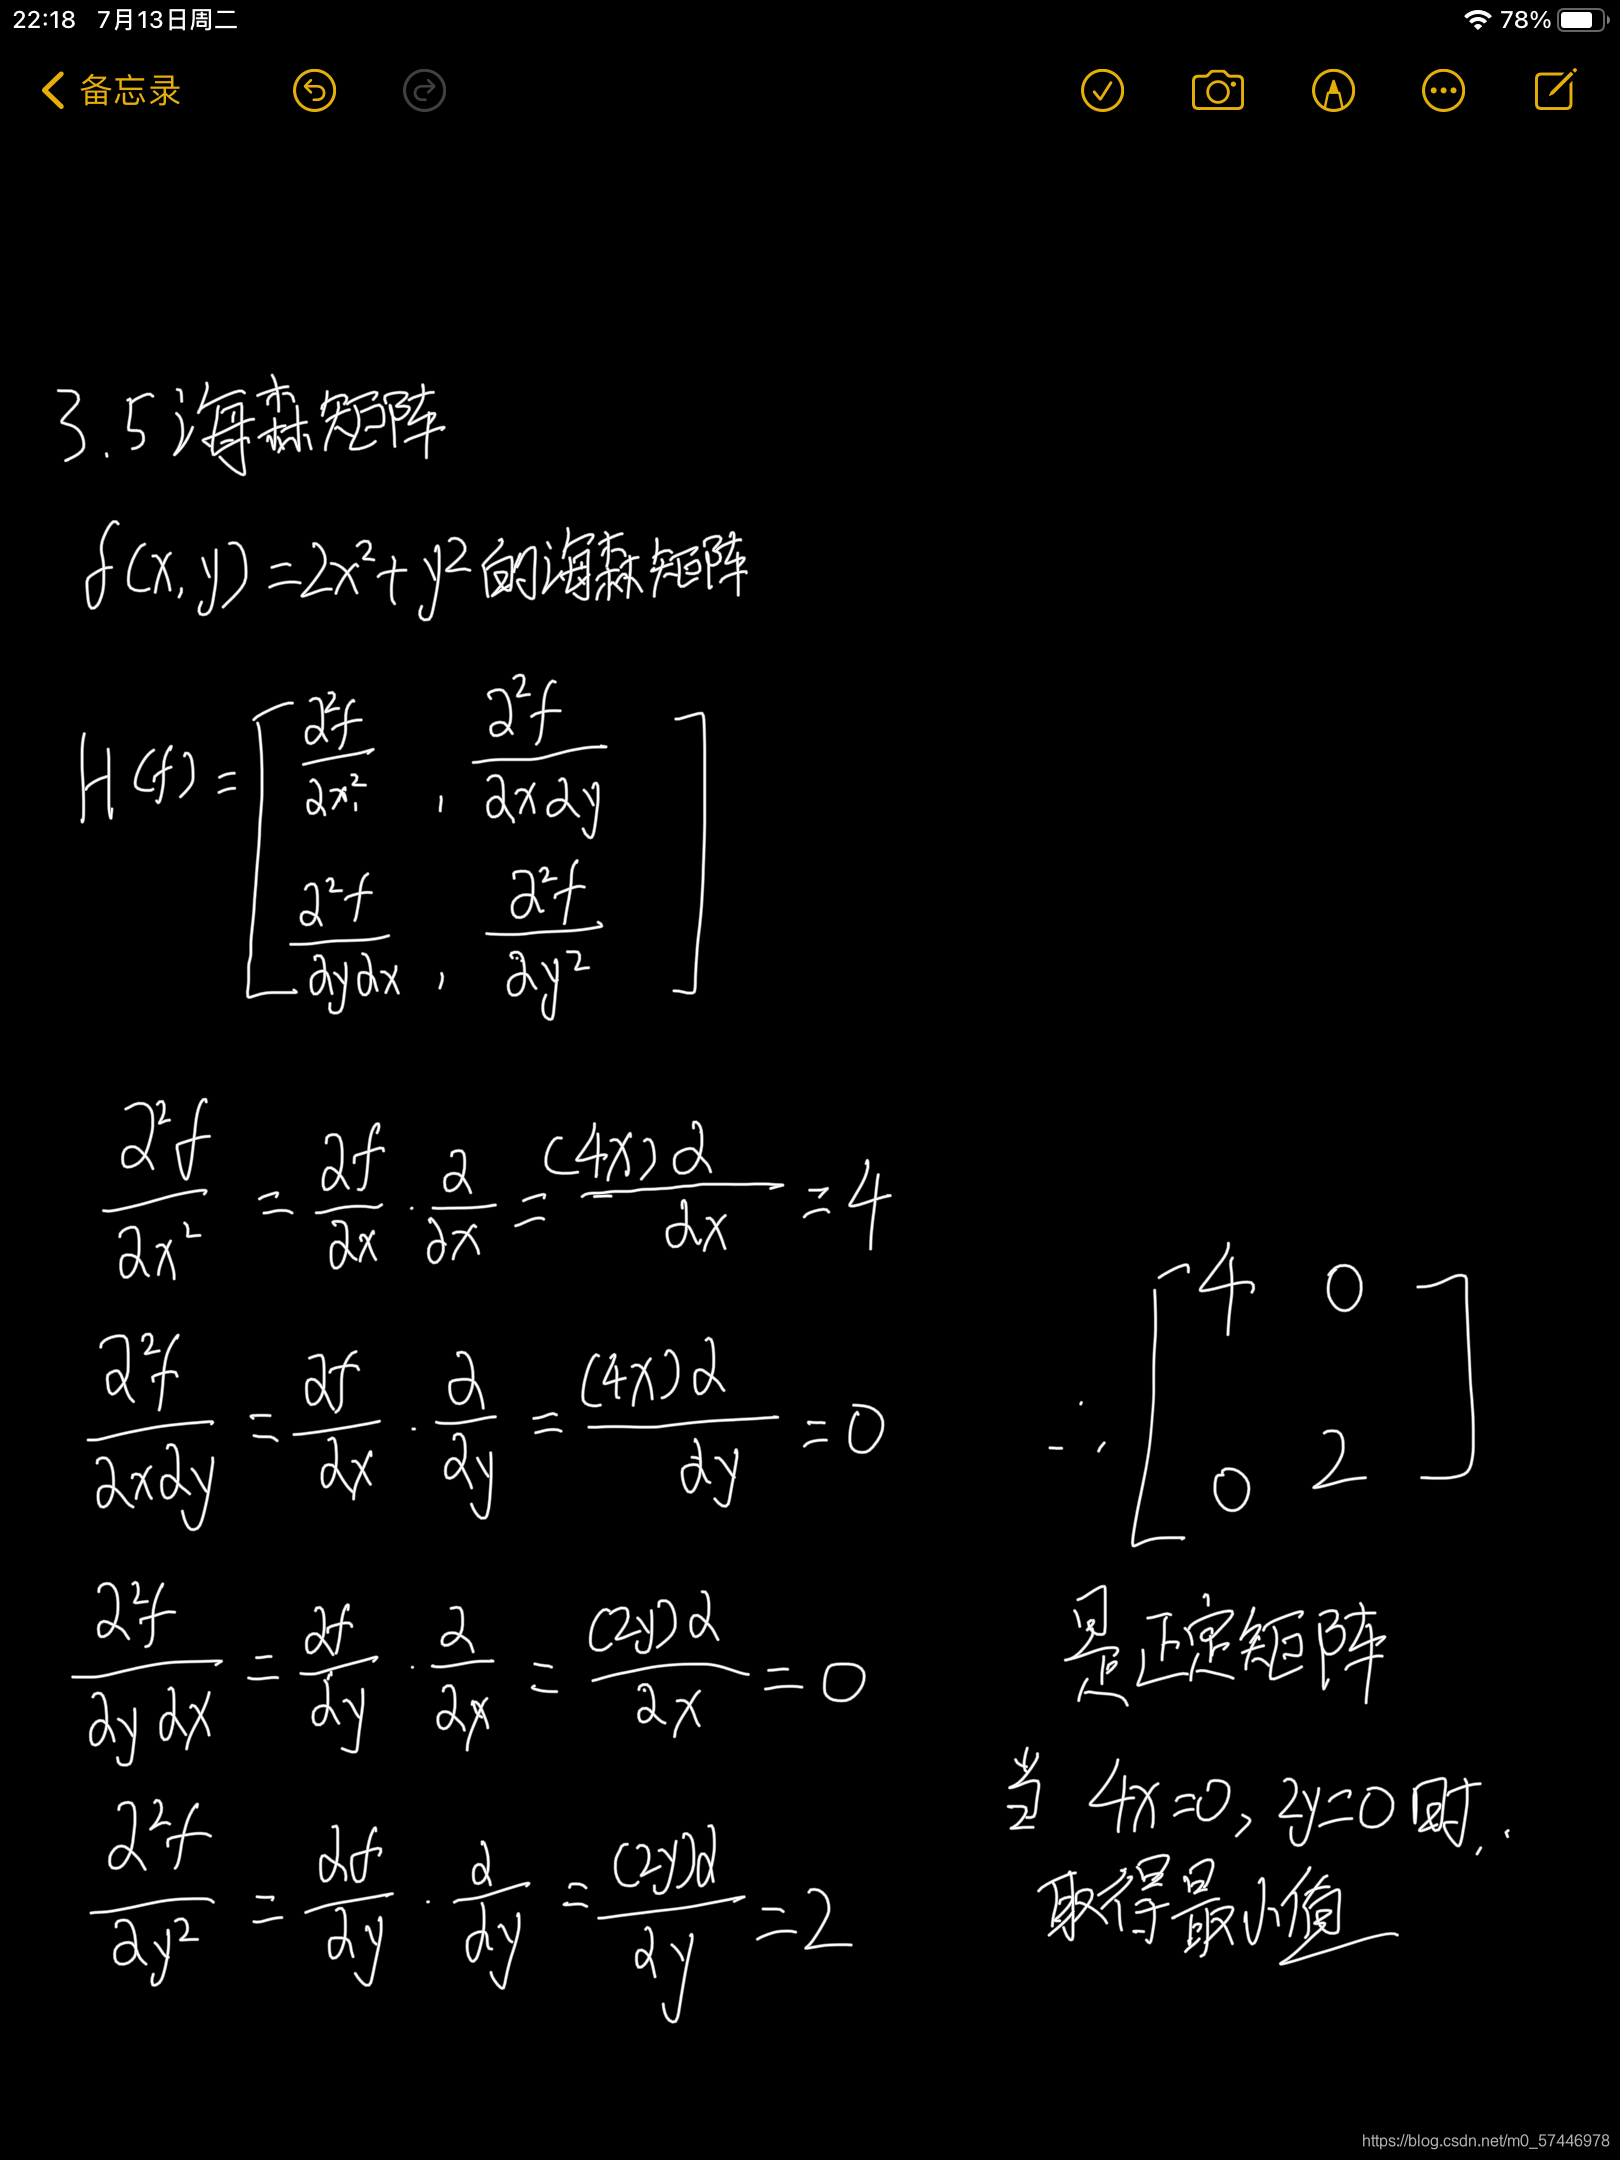 22:18 7月13日周二 78%
备忘录
3.5 海森矩阵
f(x,y)=2x²+y²的海森矩阵
H(f)=[∂²f/∂x², ∂²f/∂x∂y
∂²f/∂y∂x, ∂²f/∂y²]
∂²f/∂x² = ∂f/∂x · ∂/∂x = (4x)∂/∂x = 4
∂²f/∂x∂y = ∂f/∂x · ∂/∂y = (4x)∂/∂y = 0
∂²f/∂y∂x = ∂f/∂y · ∂/∂x = (2y)∂/∂x = 0
∂²f/∂y² = ∂f/∂y · ∂/∂y = (2y)∂/∂y = 2
∴ [4 0
0 2]
是正定矩阵
当 4x=0, 2y=0时,
取得最小值
https://blog.csdn.net/m0_57446978